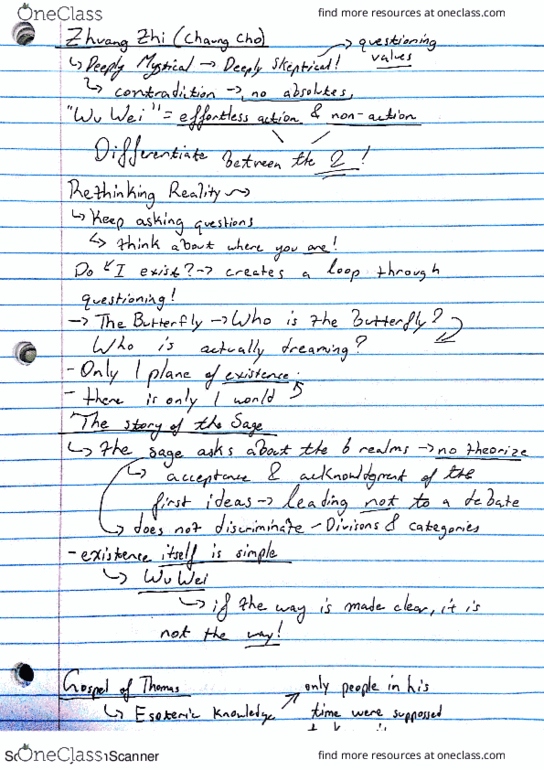 OneClass
find more resources at oneclass.com
Zhuang Zhi (Chaung Cho)
↳ Deeply Mystical → Deeply Skeptical! → questioning values
↳ contradiction → no absolutes,
"Wu Wei" = effortless action & non-action
Differentiate between the 2!
Rethinking Reality ~>
↳ Keep asking questions
↳ think about where you are!
Do I exist? → creates a loop through
questioning!
→ The Butterfly → Who is the Butterfly?
Who is actually dreaming?
- Only 1 plane of existence.
- there is only 1 world
The story of the Sage
↳ the sage asks about the 6 realms → no theorize
↳ acceptance & acknowledgment of the
first ideas → leading not to a debate
↳ does not discriminate - Divisons & categories
- existence itself is simple
↳ Wu Wei
↳ if the way is made clear, it is
not the way!
Gospel of Thomas
↳ Esoteric Knowledge ↗ only people in his
time were suppossed
OneClass
Scanner
find more resources at oneclass.com